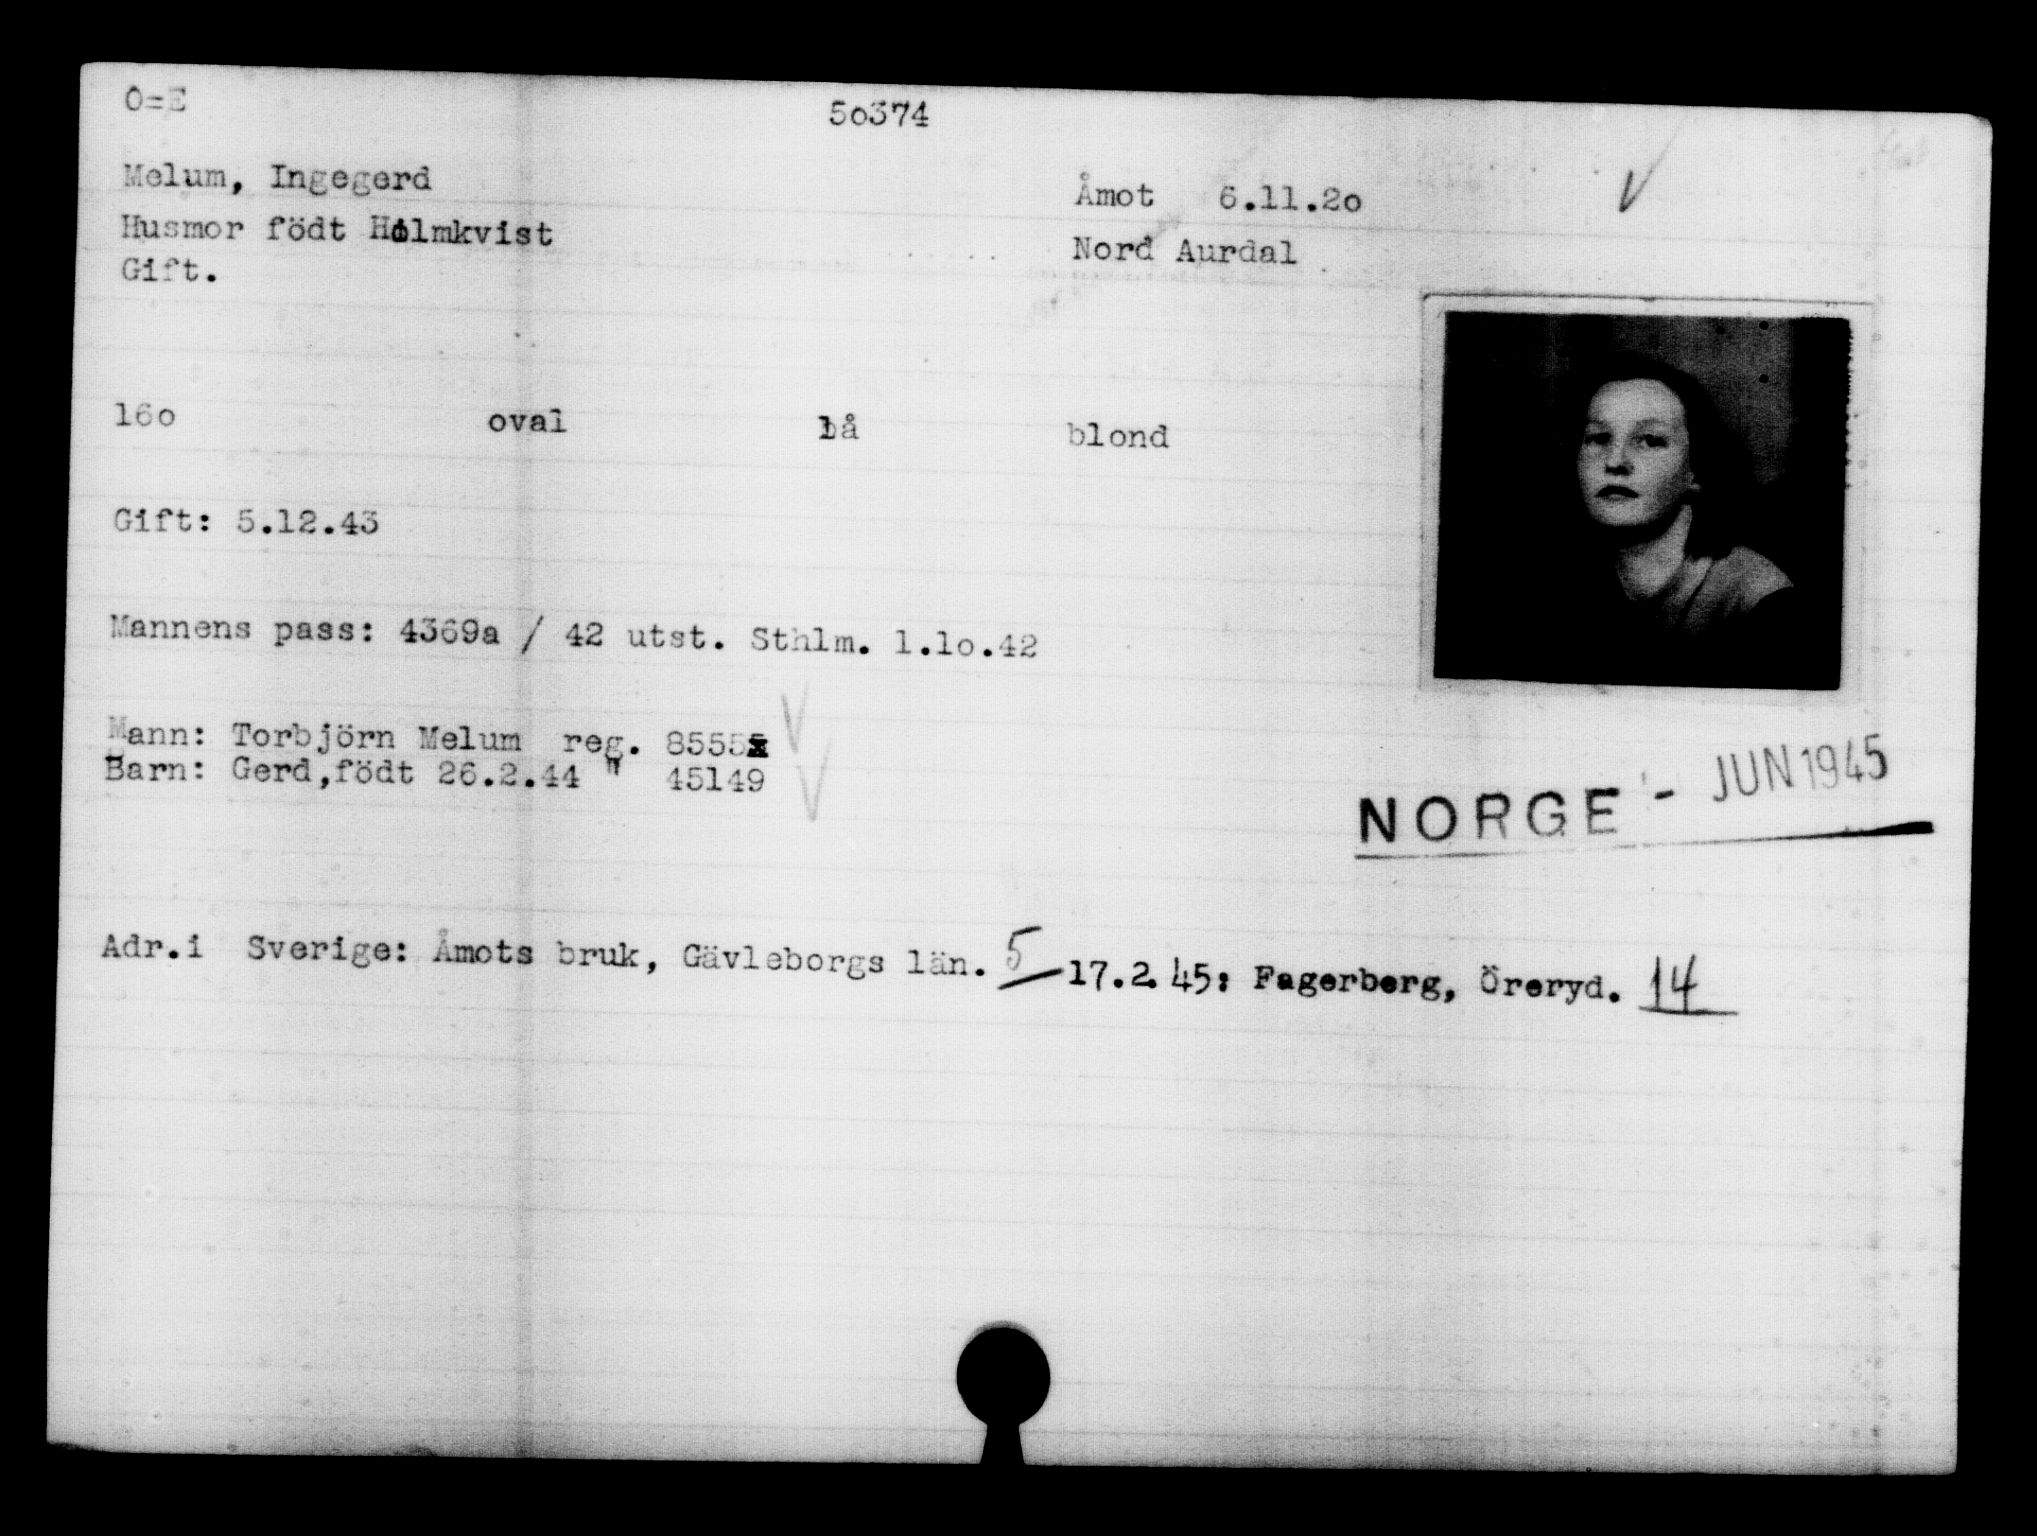 O=E
5o374
Melum, Ingegerd
Åmot 6.11.2o
Husmor födt Holmkvist
Nord Aurdal
Gift.
16o oval blå blond
Gift: 5.12.43
Mannens pass: 4369a / 42 utst. Sthlm. 1.1o.42
Mann: Torbjörn Melum reg. 8555
Barn: Gerd,födt 26.2.44 " 45149
NORGE - JUN 1945
Adr.i Sverige: Åmots bruk, Gävleborgs län. 5 17.2.45: Fagerberg, Öreryd. 14